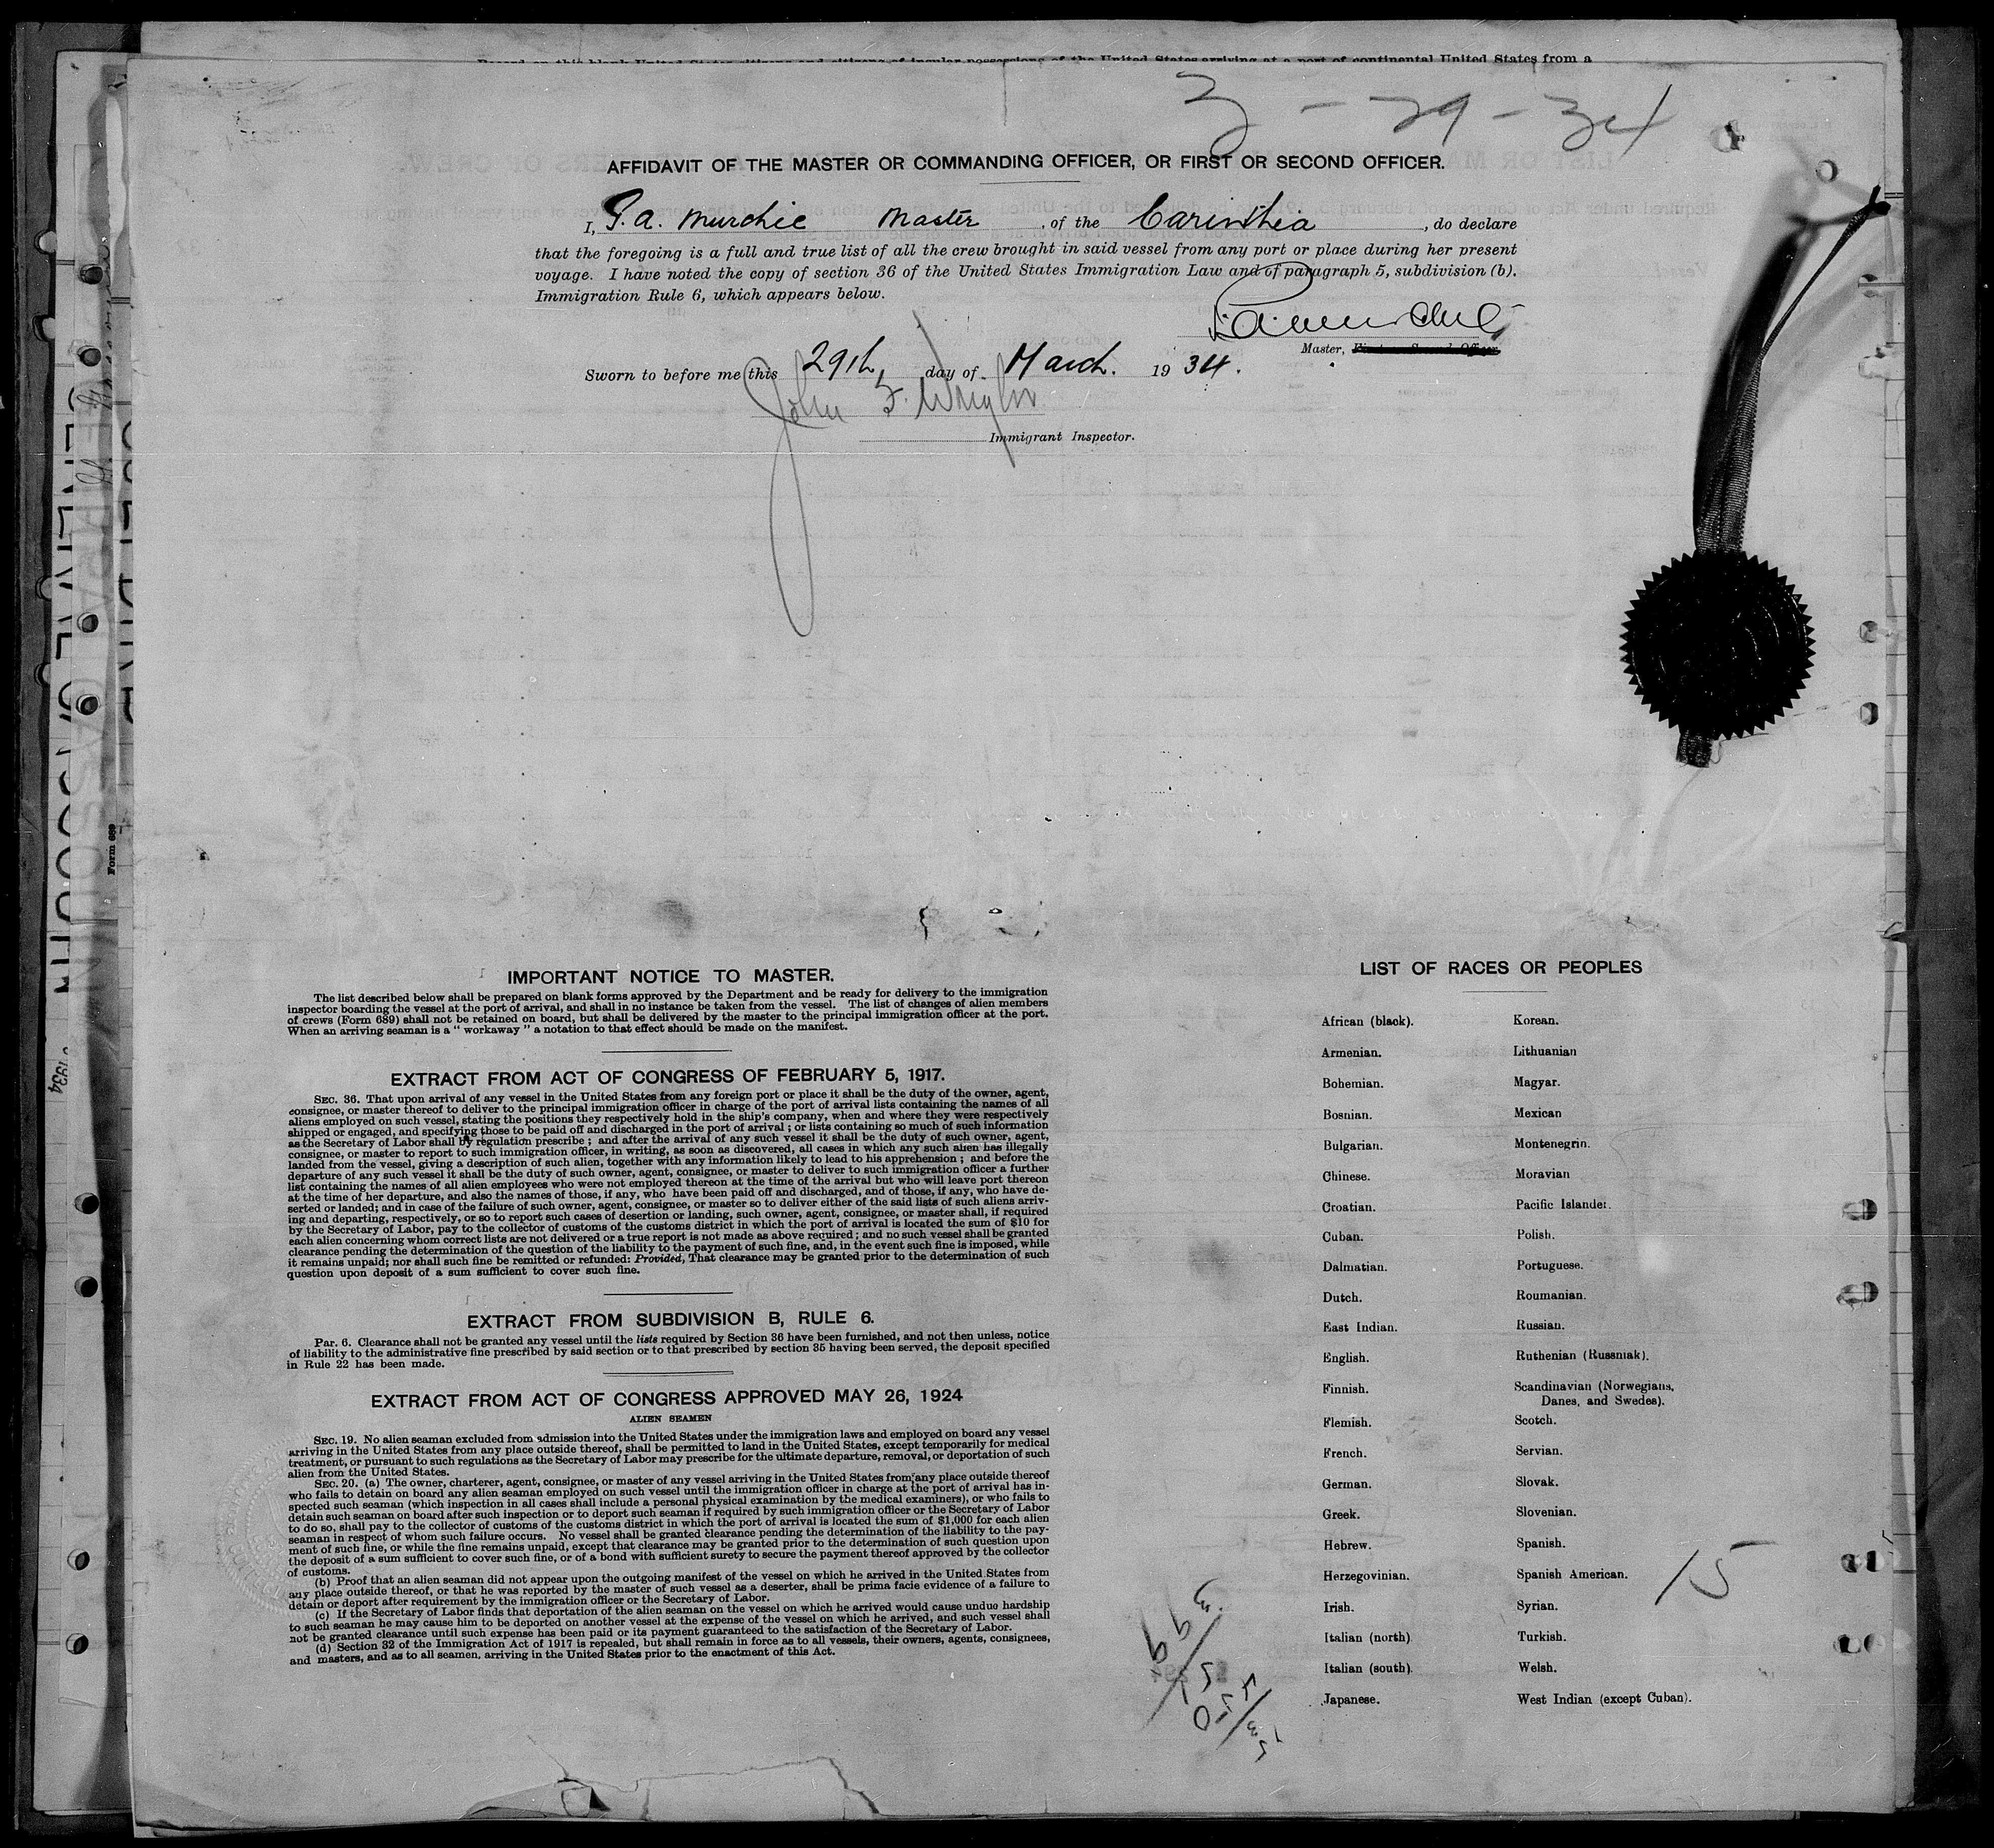 Record on this blank United States citizens and citizens of insular possessions of the United States arriving at a port of continental United States from a
3 - 29 - 34
AFFIDAVIT OF THE MASTER OR COMMANDING OFFICER, OR FIRST OR SECOND OFFICER.
I, P.a. Murchie Master, of the Carinthia, do declare
that the foregoing is a full and true list of all the crew brought in said vessel from any port or place during her present
voyage. I have noted the copy of section 36 of the United States Immigration Law and of paragraph 5, subdivision (b).
Immigration Rule 6, which appears below.
Master, First or Second Officer
Sworn to before me this 29th, day of March. 1934.
John F.
Immigrant Inspector.
Form 689
IMPORTANT NOTICE TO MASTER.
The list described below shall be prepared on blank forms approved by the Department and be ready for delivery to the immigration
inspector boarding the vessel at the port of arrival, and shall in no instance be taken from the vessel. The list of changes of alien members
of crews (Form 689) shall not be retained on board, but shall be delivered by the master to the principal immigration officer at the port.
When an arriving seaman is a " workaway " a notation to that effect should be made on the manifest.
EXTRACT FROM ACT OF CONGRESS OF FEBRUARY 5, 1917.
SEC. 36. That upon arrival of any vessel in the United States from any foreign port or place it shall be the duty of the owner, agent,
consignee, or master thereof to deliver to the principal immigration officer in charge of the port of arrival lists containing the names of all
aliens employed on such vessel, stating the positions they respectively hold in the ship's company, when and where they were respectively
shipped or engaged, and specifying those to be paid off and discharged in the port of arrival ; or lists containing so much of such information
as the Secretary of Labor shall by regulation prescribe ; and after the arrival of any such vessel it shall be the duty of such owner, agent,
consignee, or master to report to such immigration officer, in writing, as soon as discovered, all cases in which any such alien has illegally
landed from the vessel, giving a description of such alien, together with any information likely to lead to his apprehension ; and before the
departure of any such vessel it shall be the duty of such owner, agent, consignee, or master to deliver to such immigration officer a further
list containing the names of all alien employees who were not employed thereon at the time of the arrival but who will leave port thereon
at the time of her departure, and also the names of those, if any, who have been paid off and discharged, and of those, if any, who have de-
serted or landed; and in case of the failure of such owner, agent, consignee, or master so to deliver either of the said lists of such aliens arriv-
ing and departing, respectively, or so to report such cases of desertion or landing, such owner, agent, consignee, or master shall, if required
by the Secretary of Labor, pay to the collector of customs of the customs district in which the port of arrival is located the sum of $10 for
each alien concerning whom correct lists are not delivered or a true report is not made as above required ; and no such vessel shall be granted
clearance pending the determination of the question of the liability to the payment of such fine, and, in the event such fine is imposed, while
it remains unpaid; nor shall such fine be remitted or refunded: Provided, That clearance may be granted prior to the determination of such
question upon deposit of a sum sufficient to cover such fine.
EXTRACT FROM SUBDIVISION B, RULE 6.
Par. 6. Clearance shall not be granted any vessel until the lists required by Section 36 have been furnished, and not then unless, notice
of liability to the administrative fine prescribed by said section or to that prescribed by section 35 having been served, the deposit specified
in Rule 22 has been made.
EXTRACT FROM ACT OF CONGRESS APPROVED MAY 26, 1924
ALIEN SEAMEN
SEC. 19. No alien seaman excluded from admission into the United States under the immigration laws and employed on board any vessel
arriving in the United States from any place outside thereof, shall be permitted to land in the United States, except temporarily for medical
treatment, or pursuant to such regulations as the Secretary of Labor may prescribe for the ultimate departure, removal, or deportation of such
alien from the United States.
SEC. 20. (a) The owner, charterer, agent, consignee, or master of any vessel arriving in the United States from any place outside thereof
who fails to detain on board any alien seaman employed on such vessel until the immigration officer in charge at the port of arrival has in-
spected such seaman (which inspection in all cases shall include a personal physical examination by the medical examiners), or who fails to
detain such seaman on board after such inspection or to deport such seaman if required by such immigration officer or the Secretary of Labor
to do so, shall pay to the collector of customs of the customs district in which the port of arrival is located the sum of $1,000 for each alien
seaman in respect of whom such failure occurs. No vessel shall be granted clearance pending the determination of the liability to the pay-
ment of such fine, or while the fine remains unpaid, except that clearance may be granted prior to the determination of such question upon
the deposit of a sum sufficient to cover such fine, or of a bond with sufficient surety to secure the payment thereof approved by the collector
of customs.
(b) Proof that an alien seaman did not appear upon the outgoing manifest of the vessel on which he arrived in the United States from
any place outside thereof, or that he was reported by the master of such vessel as a deserter, shall be prima facie evidence of a failure to
detain or deport after requirement by the immigration officer or the Secretary of Labor.
(c) If the Secretary of Labor finds that deportation of the alien seaman on the vessel on which he arrived would cause undue hardship
to such seaman he may cause him to be deported on another vessel at the expense of the vessel on which he arrived, and such vessel shall
not be granted clearance until such expense has been paid or its payment guaranteed to the satisfaction of the Secretary of Labor.
(d) Section 32 of the Immigration Act of 1917 is repealed, but shall remain in force as to all vessels, their owners, agents, consignees,
and masters, and as to all seamen, arriving in the United States prior to the enactment of this Act.
LIST OF RACES OR PEOPLES
African (black). Korean.
Armenian. Lithuanian
Bohemian. Magyar.
Bosnian. Mexican
Bulgarian. Montenegrin.
Chinese. Moravian
Croatian. Pacific Islander.
Cuban. Polish.
Dalmatian. Portuguese.
Dutch. Roumanian.
East Indian. Russian.
English. Ruthenian (Russniak).
Finnish. Scandinavian (Norwegians,
Danes, and Swedes).
Flemish. Scotch.
French. Servian.
German. Slovak.
Greek. Slovenian.
Hebrew. Spanish.
Herzegovinian. Spanish American.
Irish. Syrian.
Italian (north) Turkish.
Italian (south) Welsh.
Japanese. West Indian (except Cuban).
15